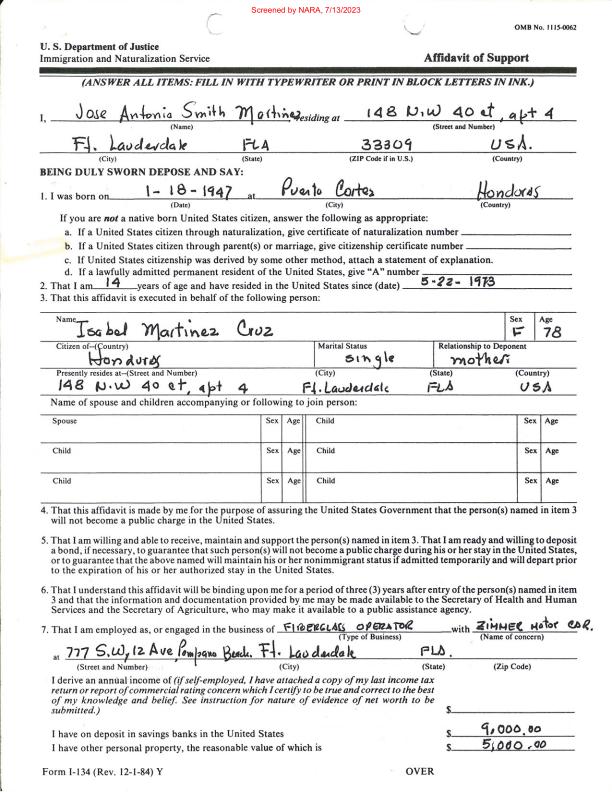 Screened by NARA, 7/13/2023
OMB No. 1115-0062
U. S. Department of Justice
Immigration and Naturalization Service Affidavit of Support
(ANSWER ALL ITEMS: FILL IN WITH TYPEWRITER OR PRINT IN BLOCK LETTERS IN INK.)
I, Jose Antonio Smith Martinez residing at 148 N.W 40 ct, apt 4
(Name) (Street and Number)
Ft. Lauderdale FLA 33309 USA.
(City) (State) (ZIP Code if in U.S.) (Country)
BEING DULY SWORN DEPOSE AND SAY:
1. I was born on 1-18-1947 at Puerto Cortez Honduras
(Date) (City) (Country)
If you are not a native born United States citizen, answer the following as appropriate:
a. If a United States citizen through naturalization, give certificate of naturalization number
b. If a United States citizen through parent(s) or marriage, give citizenship certificate number
c. If United States citizenship was derived by some other method, attach a statement of explanation.
d. If a lawfully admitted permanent resident of the United States, give "A" number
2. That I am 14 years of age and have resided in the United States since (date) 5-22-1973
3. That this affidavit is executed in behalf of the following person:
Name Isabel Martinez Cruz Sex F Age 78
Citizen of--(Country) Marital Status Relationship to Deponent
Hondures single mother
Presently resides at--(Street and Number) (City) (State) (Country)
148 N.W 40 ct, apt 4 Ft. Lauderdale FLA USA
Name of spouse and children accompanying or following to join person:
Spouse Sex Age Child Sex Age
Child Sex Age Child Sex Age
Child Sex Age Child Sex Age
4. That this affidavit is made by me for the purpose of assuring the United States Government that the person(s) named in item 3
will not become a public charge in the United States.
5. That I am willing and able to receive, maintain and support the person(s) named in item 3. That I am ready and willing to deposit
a bond, if necessary, to guarantee that such person(s) will not become a public charge during his or her stay in the United States,
or to guarantee that the above named will maintain his or her nonimmigrant status if admitted temporarily and will depart prior
to the expiration of his or her authorized stay in the United States.
6. That I understand this affidavit will be binding upon me for a period of three (3) years after entry of the person(s) named in item
3 and that the information and documentation provided by me may be made available to the Secretary of Health and Human
Services and the Secretary of Agriculture, who may make it available to a public assistance agency.
7. That I am employed as, or engaged in the business of FIBERGLASS OPERATOR with ZIMMER Motor CAR.
(Type of Business) (Name of concern)
at 777 S.W, 12 Ave, Pompano Beach. Ft. Lauderdale FLA.
(Street and Number) (City) (State) (Zip Code)
I derive an annual income of (if self-employed, I have attached a copy of my last income tax
return or report of commercial rating concern which I certify to be true and correct to the best
of my knowledge and belief. See instruction for nature of evidence of net worth to be
submitted.) $
I have on deposit in savings banks in the United States $ 9,000.00
I have other personal property, the reasonable value of which is $ 5,000.00
Form I-134 (Rev. 12-1-84) Y OVER